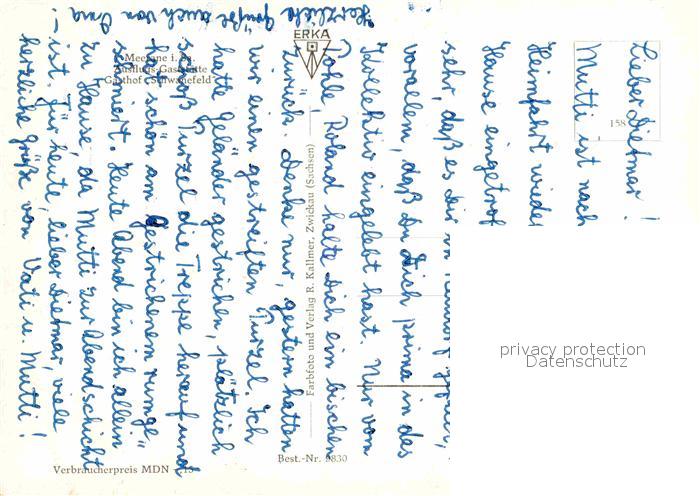 Lieber Dietmar!
Mutti ist nach
Heimfahrt wieder
Hause eingetrof
sehr, daß es Dir in
vorallem, daß Du Dich prima in das
Kollektiv eingelebt hast. Nur vom
Roland halte Dich ein bischen
zurück. Denke nur, gestern hatten
wir einen gestreiften Purzel. Ich
hatte Geländer gestrichen, plötzlich
schoß Purzel die Treppe herauf und
hat schön am Gestrichenem rumge=
schmiert. Heute Abend bin ich allein
zu Hause, da Mutti zur Abendschicht
ist. Für heute, lieber Dietmar, viele
herzliche Grüße von Vati u. Mutti!
Herzliche Grüße auch von Oma!
Meerane i. Sa.
Ausflugs-Gaststätte
Gasthof „Schwanefeld“
ERKA
Farbfoto und Verlag R. Kallmer, Zwickau (Sachsen)
158
Verbraucherpreis MDN
Best.-Nr. 9830
privacy protection
Datenschutz